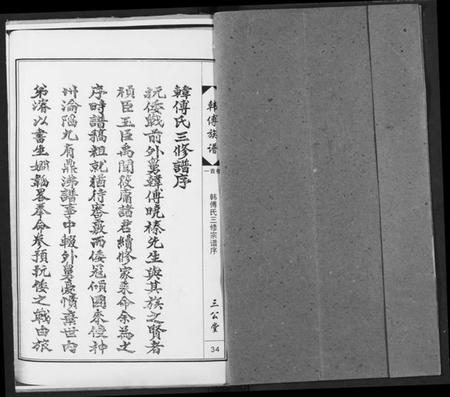 韓傅族谱
卷首一
韩傅氏三修宗谱序
三公堂
34
韓傅氏三修譜序
抗倭戰前外舅韓傅曉榛先生與其族之賢者
禎臣玉臣禹聞筱庸諸君續修家乘命余為之
序時譜稿粗就猶待審覈而倭冠傾國來侵神
州淪陷九有鼎沸譜事中輟外舅憂憤棄世內
弟濬以書生嫺韜畧奉命参預抗倭之戰由旅